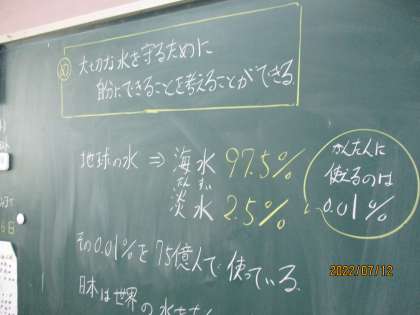 め 大切な水を守るために
自分にできることを考えることができる。
地球の水 ⇒ 海水 97.5%
たんすい
淡水 2.5%
かんたんに
使えるのは
0.01%
その0.01%を75億人で使っている。
日本は世界の水をたく
2022/07/12